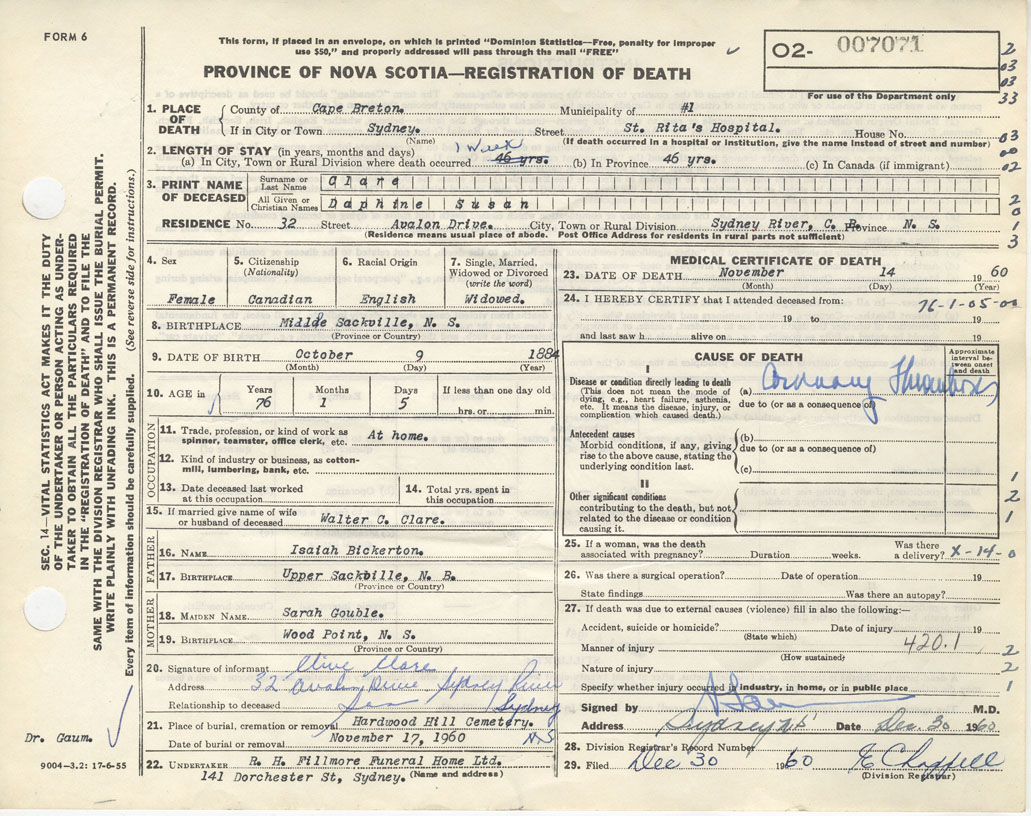 FORM 6
This form, if placed in an envelope, on which is printed "Dominion Statistics—Free, penalty for improper
use $50," and properly addressed will pass through the mail "FREE"
O2- 007071
For use of the Department only
2
03
03
33
PROVINCE OF NOVA SCOTIA—REGISTRATION OF DEATH
1. PLACE OF DEATH
County of Cape Breton. Municipality of #1
If in City or Town Sydney. Street St. Rita's Hospital. House No.
(Name) (If death occurred in a hospital or institution, give the name instead of street and number)
03
00
02
2. LENGTH OF STAY (in years, months and days)
1 Week
(a) In City, Town or Rural Division where death occurred 46 yrs. (b) In Province 46 yrs. (c) In Canada (if immigrant)
3. PRINT NAME OF DECEASED
Surname or Last Name Clare
All Given or Christian Names Daphine Susan
2
0
1
3
RESIDENCE No. 32 Street Avalon Drive. City, Town or Rural Division Sydney River, C. B. Province N. S.
(Residence means usual place of abode. Post Office Address for residents in rural parts not sufficient)
4. Sex
Female
5. Citizenship
(Nationality)
Canadian
6. Racial Origin
English
7. Single, Married,
Widowed or Divorced
(write the word)
Widowed.
8. BIRTHPLACE Middle Sackville, N. S.
(Province or Country)
9. DATE OF BIRTH October 9 1884
(Month) (Day) (Year)
10. AGE in
Years Months Days If less than one day old
76 1 5 hrs. or min.
OCCUPATION
11. Trade, profession, or kind of work as
spinner, teamster, office clerk, etc. At home.
12. Kind of industry or business, as cotton-
mill, lumbering, bank, etc.
13. Date deceased last worked
at this occupation
14. Total yrs. spent in
this occupation
15. If married give name of wife
or husband of deceased Walter C. Clare.
FATHER
16. NAME Isaiah Bickerton.
17. BIRTHPLACE Upper Sackville, N. B.
(Province or Country)
MOTHER
18. MAIDEN NAME Sarah Gouble.
19. BIRTHPLACE Wood Point, N. S.
(Province or Country)
20. Signature of informant Clive Clare
Address 32 Avalon Drive Sydney River
Relationship to deceased Son Sydney
N.S
21. Place of burial, cremation or removal Hardwood Hill Cemetery.
Date of burial or removal November 17, 1960
22. UNDERTAKER R. H. Fillmore Funeral Home Ltd.
141 Dorchester St, Sydney. (Name and address)
MEDICAL CERTIFICATE OF DEATH
23. DATE OF DEATH November 14 1960
(Month) (Day) (Year)
24. I HEREBY CERTIFY that I attended deceased from:
76-1-05-00
19 to 19
and last saw h alive on 19
CAUSE OF DEATH
Approximate
interval be-
tween onset
and death
I
Disease or condition directly leading to death
(This does not mean the mode of
dying, e.g., heart failure, asthenia,
etc. It means the disease, injury, or
complication which caused death.)
(a) Coronary Thrombosis
due to (or as a consequence of)
Antecedent causes
Morbid conditions, if any, giving
rise to the above cause, stating the
underlying condition last.
(b)
due to (or as a consequence of)
(c)
II
Other significant conditions
contributing to the death, but not
related to the disease or condition
causing it.
1
2
1
25. If a woman, was the death
associated with pregnancy? Duration weeks. Was there
a delivery? X-14-0
26. Was there a surgical operation? Date of operation 19
State findings Was there an autopsy?
27. If death was due to external causes (violence) fill in also the following:—
Accident, suicide or homicide? Date of injury 19
(State which)
Manner of injury 420.1
(How sustained)
Nature of injury
Specify whether injury occurred in industry, in home, or in public place
2
2
1
Signed by M.D.
Address Sydney NS Date Dec. 30 1960
28. Division Registrar's Record Number
29. Filed Dec 30 1960 E Chappell
(Division Registrar)
SEC. 14—VITAL STATISTICS ACT MAKES IT THE DUTY
OF THE UNDERTAKER OR PERSON ACTING AS UNDER-
TAKER TO OBTAIN ALL THE PARTICULARS REQUIRED
IN THE "REGISTRATION OF DEATH" AND TO FILE THE
SAME WITH THE DIVISION REGISTRAR WHO SHALL ISSUE THE BURIAL PERMIT.
WRITE PLAINLY WITH UNFADING INK. THIS IS A PERMANENT RECORD.
Every item of information should be carefully supplied. (See reverse side for instructions.)
Dr. Gaum.
9004-3.2: 17-6-55